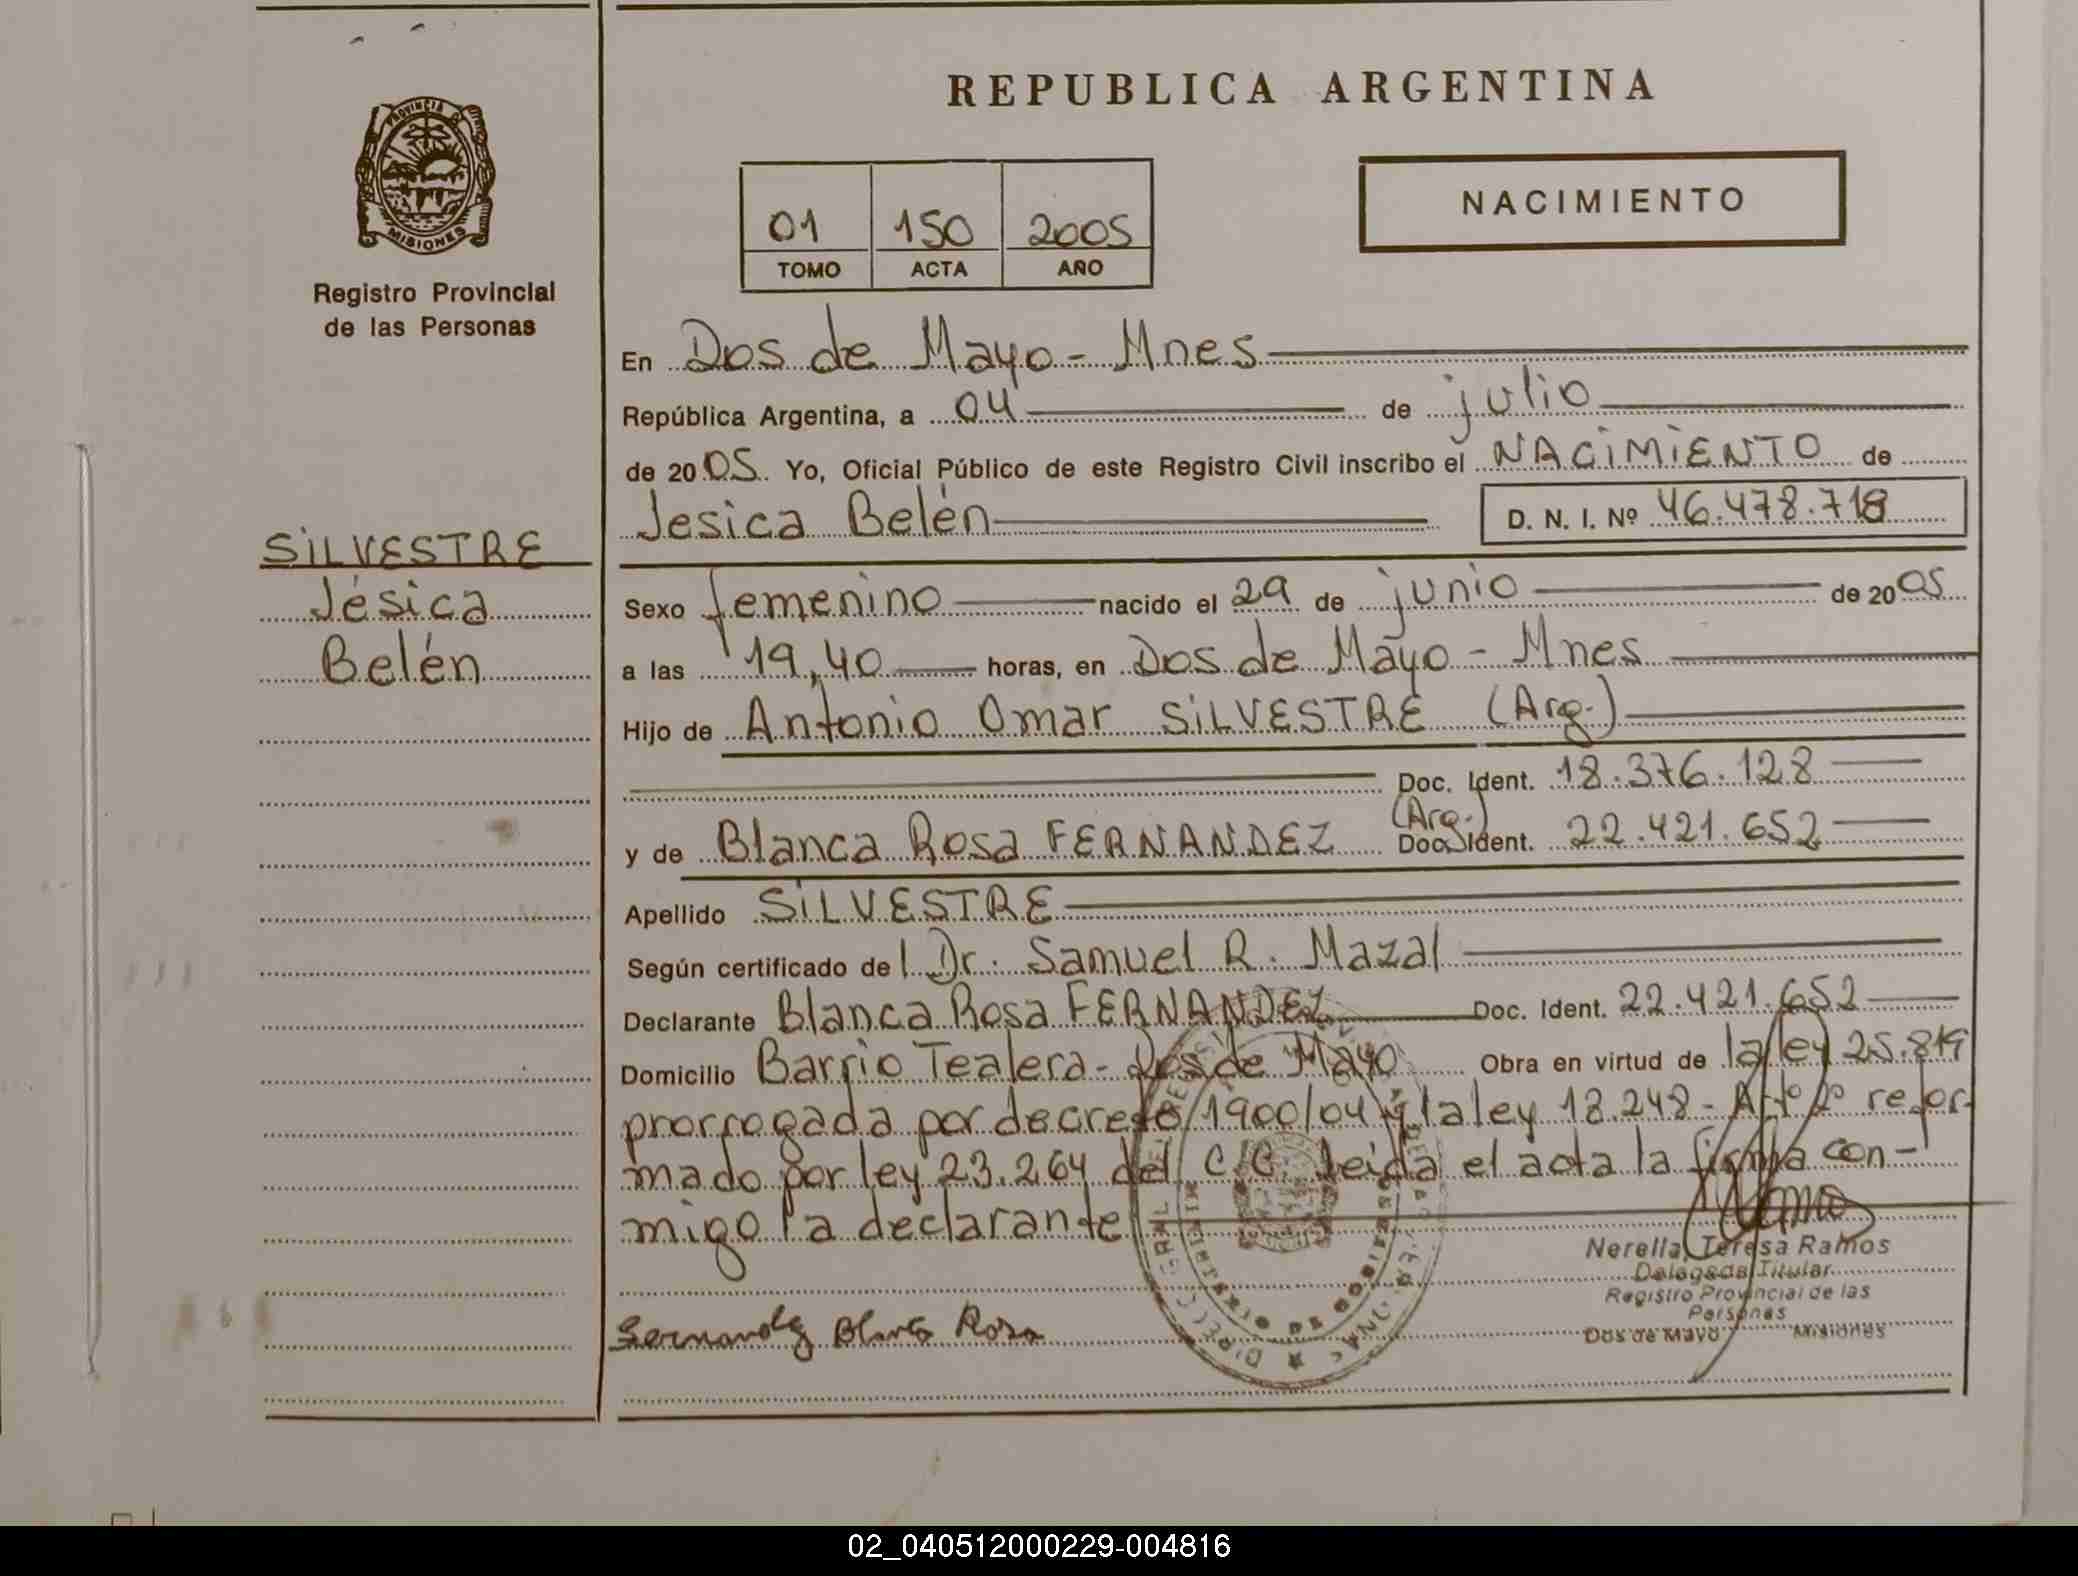 REPUBLICA ARGENTINA
PROVINCIA DE
MISIONES
Registro Provincial
de las Personas
01 150 2005
TOMO ACTA AÑO
NACIMIENTO
En Dos de Mayo - Mnes
República Argentina, a 04 de julio
de 2005. Yo, Oficial Público de este Registro Civil inscribo el NACIMIENTO de
Jesica Belén D. N. I. Nº 46.478.718
SILVESTRE
Jésica
Belén
Sexo femenino nacido el 29 de junio de 2005
a las 19,40 horas, en Dos de Mayo - Mnes
Hijo de Antonio Omar SILVESTRE (Arg.)
Doc. Ident. 18.376.128
y de Blanca Rosa FERNANDEZ (Arg.) Doc. Ident. 22.421.652
Apellido SILVESTRE
Según certificado del Dr. Samuel R. Mazal
Declarante Blanca Rosa FERNANDEZ Doc. Ident. 22.421.652
Domicilio Barrio Tealera - Dos de Mayo Obra en virtud de la ley 25.819
prorrogada por decreto 1900/04 y la ley 18.248 - Artº 2º refor-
mado por ley 23.264 del C/C. Leída el acta la firma con-
migo la declarante
Nerella Teresa Ramos
Delegada Titular
Registro Provincial de las
Personas
Dos de Mayo Misiones
Fernandez Blanca Rosa
02_040512000229-004816